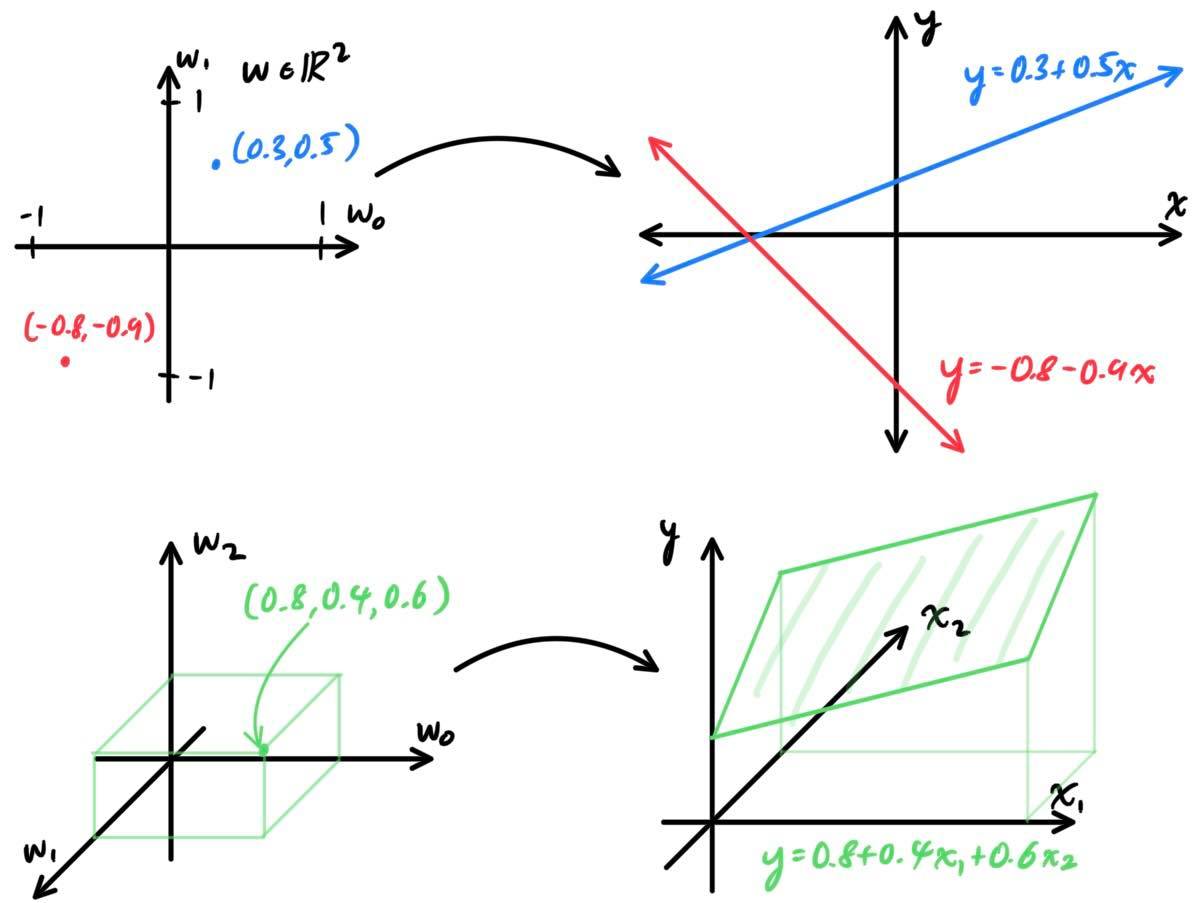 w₁
w ∈ ℝ²
1
(0.3,0.5)
-1
1
w₀
(-0.8,-0.9)
-1
y
y=0.3+0.5x
x
y=-0.8-0.9x
w₂
(0.8,0.4,0.6)
w₀
w₁
y
x₂
x₁
y=0.8+0.4x₁+0.6x₂